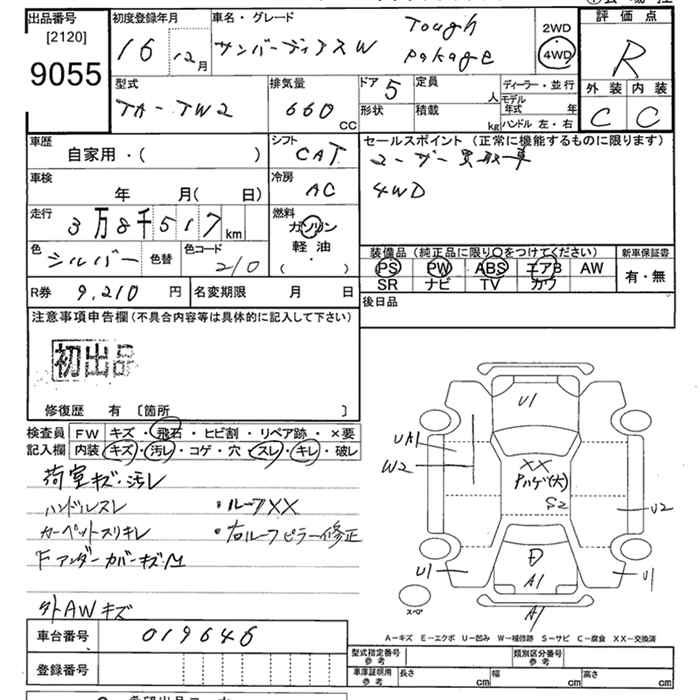 出品番号 初度登録年月 車名・グレード 評価点
[2120]
9055
16 12月 サンバーディアスW Tough Pakage
2WD
4WD
R
型式 排気量 ドア 5 定員 人 ディーラー・並行 外装 内装
TA-TW2 660 CC 形状 積載 kg モデル年式 年
ハンドル 左・右 C C
車歴 シフト セールスポイント (正常に機能するものに限ります)
自家用・( ) CAT ユーザー買取車
車検 冷房 4WD
年 月( 日) AC
走行 3万8千517km 燃料
ガソリン
色 シルバー 色替 色コード 210 軽油
( )
装備品(純正品に限り○をつけてください) 新車保証書
PS PW ABS エアB AW 有・無
SR ナビ TV カワ
R券 9,210 円 名変期限 月 日 後日品
注意事項申告欄(不具合内容等は具体的に記入して下さい)
初出品
修復歴 有 〔箇所 〕
検査員 FW キズ・飛石・ヒビ割・リペア跡・×要
記入欄 内装 キズ・汚レ・コゲ・穴・スレ・キレ・破レ
荷室キズ・汚レ
ハンドルスレ ・ルーフXX
カーペットスリキレ ・右ルーフピラー修正
Fアンダーカバーキズ・M
外AWキズ
U1
UA1
W2
XX
Pハゲ(大)
S2
U2
U1
A1
U1
A1
スペア
A-キズ E-エクボ U-凹み W-補修跡 S-サビ C-腐食 XX-交換済
車台番号 019646
登録番号
型式指定番号 参考 類別区分番号 参考
車庫証明用 参考 長さ cm 幅 cm 高さ cm